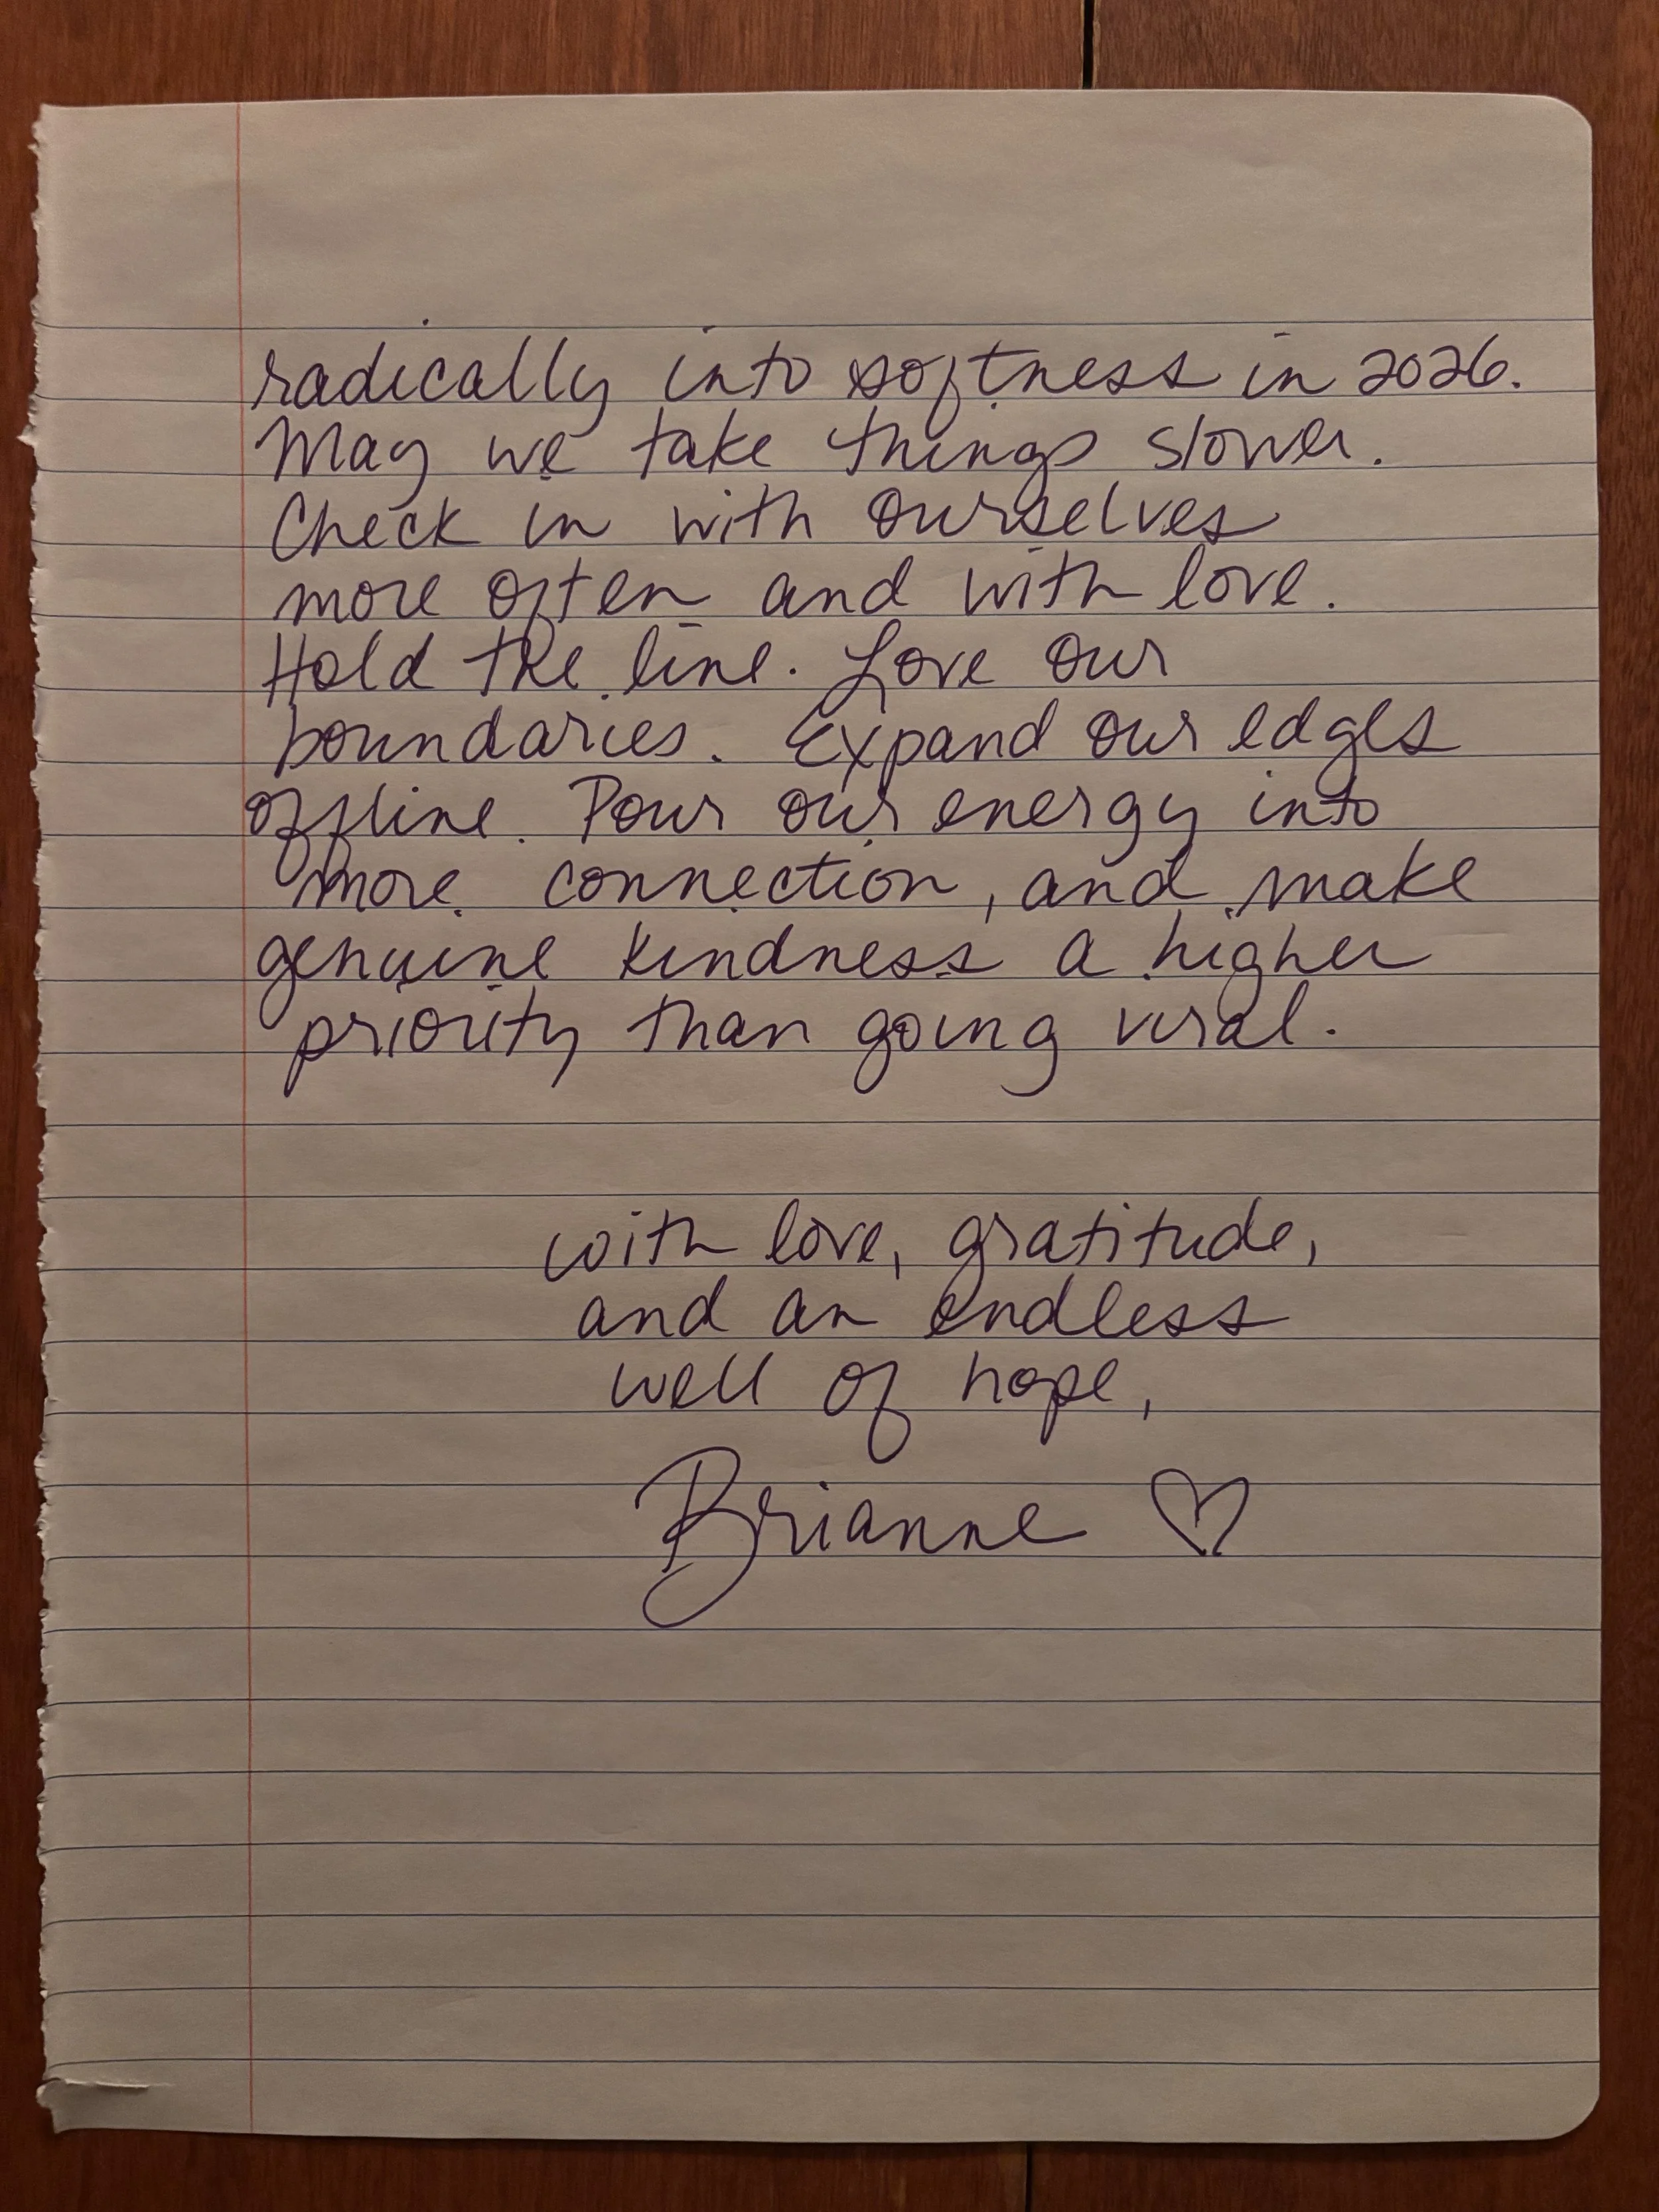 radically into softness in 2026.
May we take things slower.
Check in with ourselves
more often and with love.
Hold the line. Love our
boundaries. Expand our edges
offline. Pour our energy into
more connection, and make
genuine kindness a higher
priority than going viral.
with love, gratitude,
and an endless
well of hope,
Brianne ♡